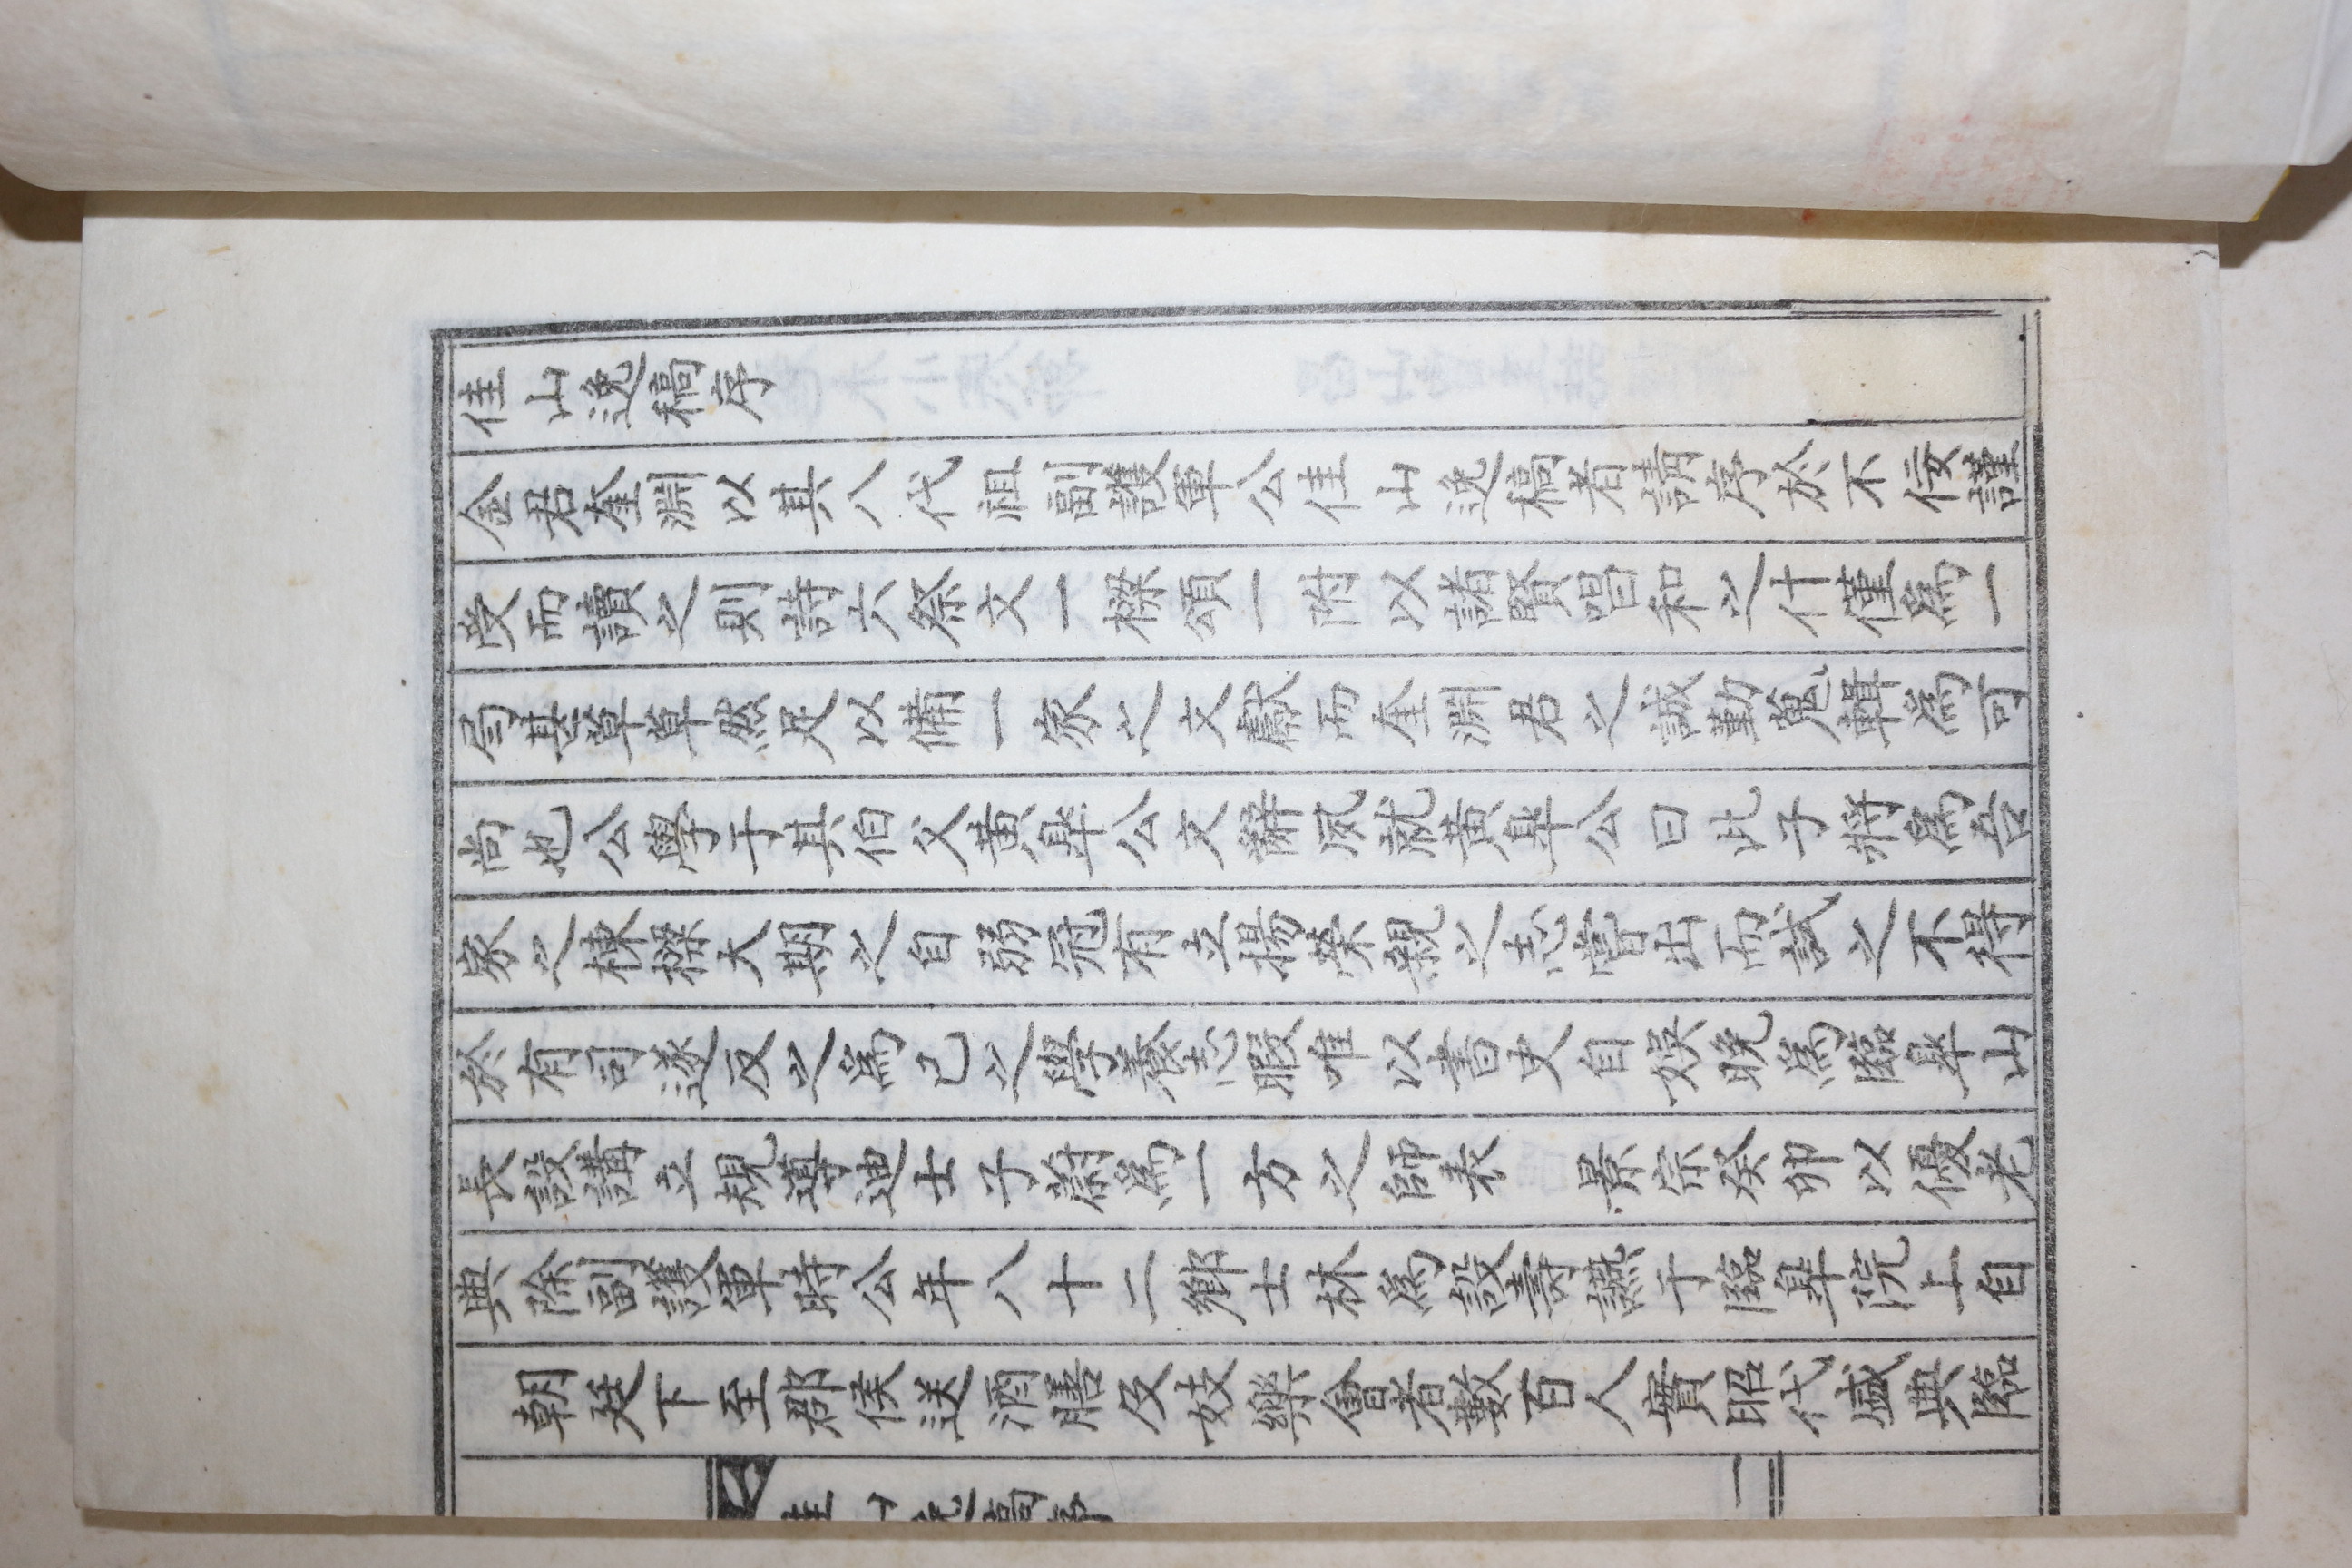 佳山逸稿序
金君奎淵以其八代祖副護軍公佳山逸稿者請序於不佞謹
受而讀之則詩六祭文一樑頌一附以諸賢唱和之什僅爲一
局甚草草然足以備一家之文獻而奎淵君之誠勤蒐輯爲可
尚也公學于其伯父黃皐公文辭夙就黃皐公曰此子將爲吾
家之棟樑大期之自弱冠有立揚榮親之志嘗出而試之不得
於有司遂反之爲己之學養志暇唯以書史自娛晚爲臨皐山
長設講立規導迪士子蔚爲一方之師表 景宗癸卯以優老
典除副護軍時公年八十二鄉士林爲設壽讌于臨皐院上自
朝廷下至郡侯送酒膳及妓樂會者數百人實昭代盛典臨
佳山逸稿序
一